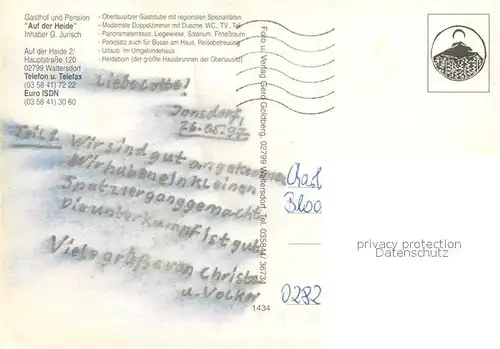 Gasthof und Pension
"Auf der Heide"
Inhaber G. Jurisch
Auf der Heide 2/
Hauptstraße 120
02799 Waltersdorf
Telefon u. Telefax
(03 58 41) 72 22
Euro ISDN
(03 58 41) 30 60
- Oberlausitzer Gaststube mit regionalen Spezialitäten
- Modernste Doppelzimmer mit Dusche, WC., TV., Tel.
- Panoramaterrasse, Liegewiese, Solarium, Fitneßraum
- Parkplatz auch für Busse am Haus. Reisebetreuung
- Urlaub im Umgebindehaus
- Heideborn (der größte Hausbrunnen der Oberlausitz)
Liebe Lotte!
Jonsdorf,
26.05.97
Teil 1 Wir sind gut angekommen
Wir haben einkleinen
Spatzierganggemacht
Die unterkumpf ist gut
Viele größe von Christa
u. Volker
Foto u. Verlag Gerd Goldberg, 02799 Waltersdorf, Tel. 035841/ 36734
1434
Bloo
0282
privacy protection
Datenschutz